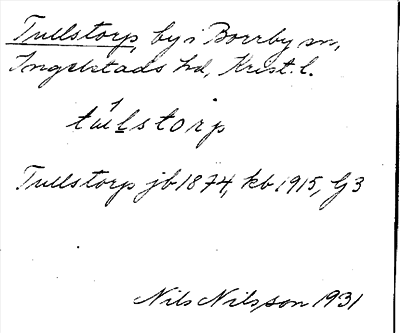 Tullstorp, by i Borrby sn,
Ingelstads hd, Krist. l.
tul̲storp
Tullstorp jb 1874, kb 1915, G3
Nils Nilsson 1931